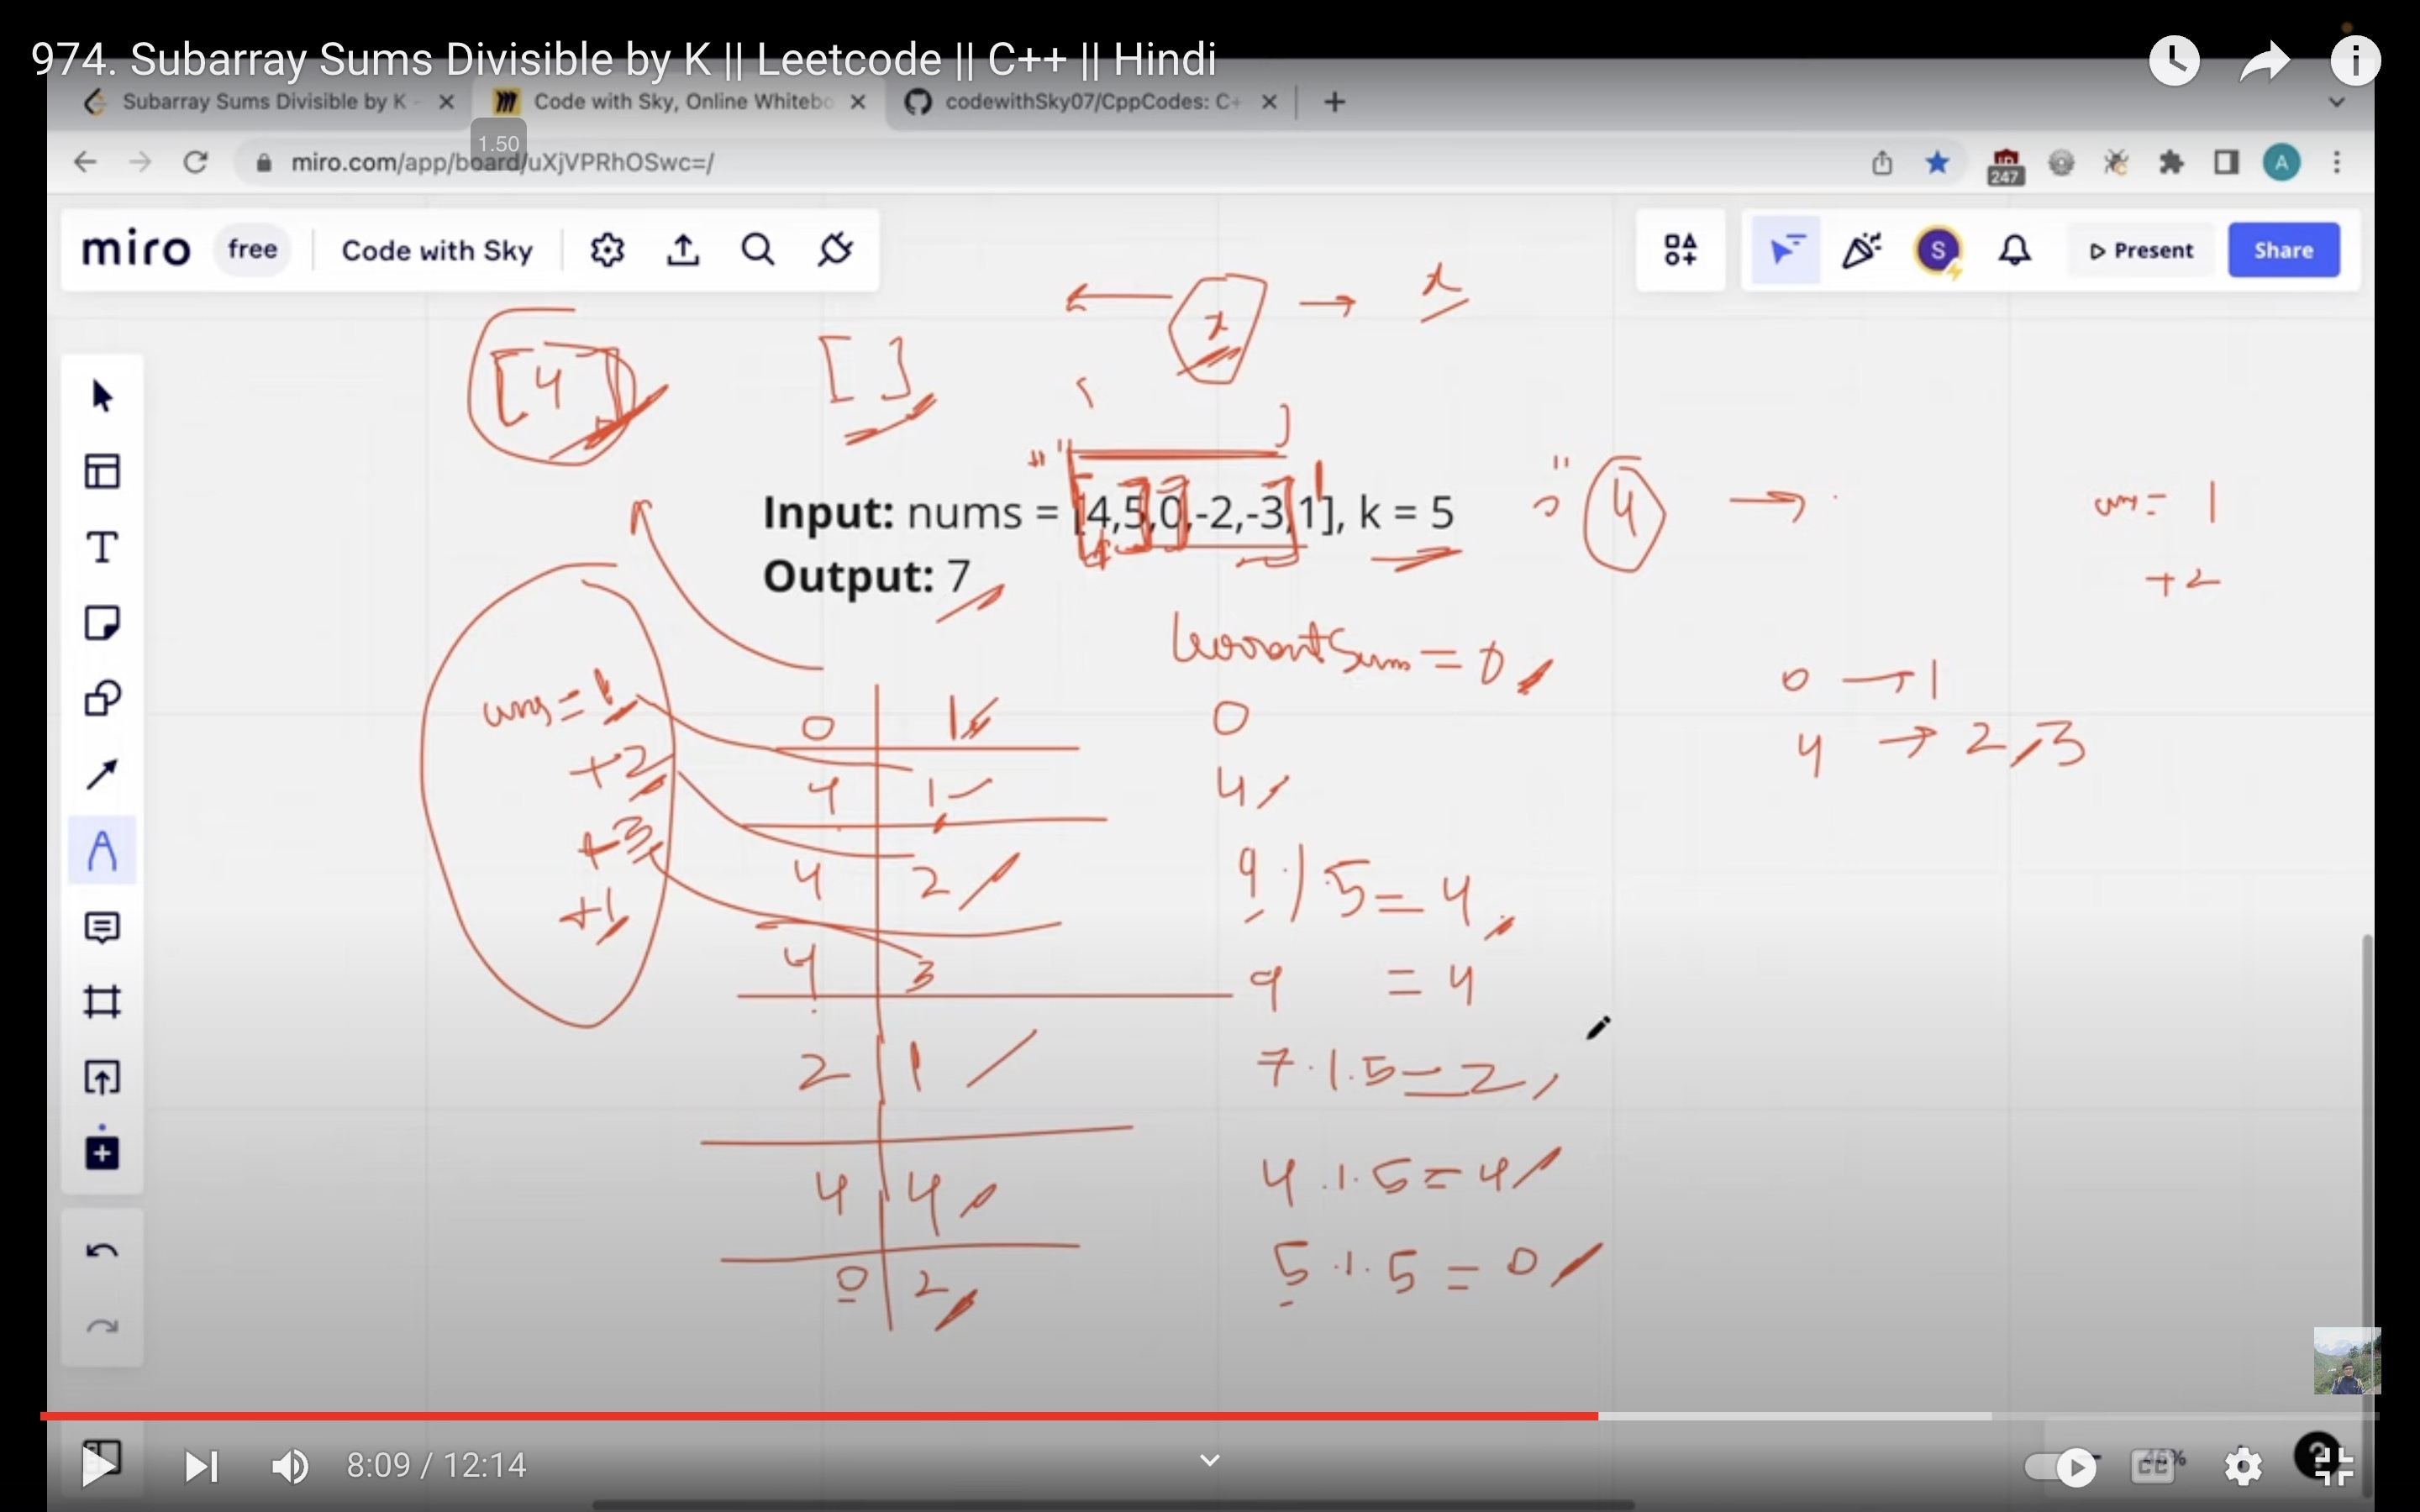 974. Subarray Sums Divisible by K || Leetcode || C++ || Hindi
Subarray Sums Divisible by K -
Code with Sky, Online Whitebo
codewithSky07/CppCodes: C+
1.50
miro.com/app/board/uXjVPRhOSwc=/
247
A
miro
free
Code with Sky
S
Present
Share
x
x
[4]
[ ]
Input: nums = [4,5,0,-2,-3,1], k = 5
4
ans = 1
+2
Output: 7
CurrentSum = 0
0 → 1
4 → 2, 3
ans = 1
+2
+3
+1
0 1
4 1
4 2
4 3
2 1
4 4
0 2
0
4
9 % 5 = 4
9 = 4
7 % 5 = 2
4 % 5 = 4
5 % 5 = 0
8:09 / 12:14
CC